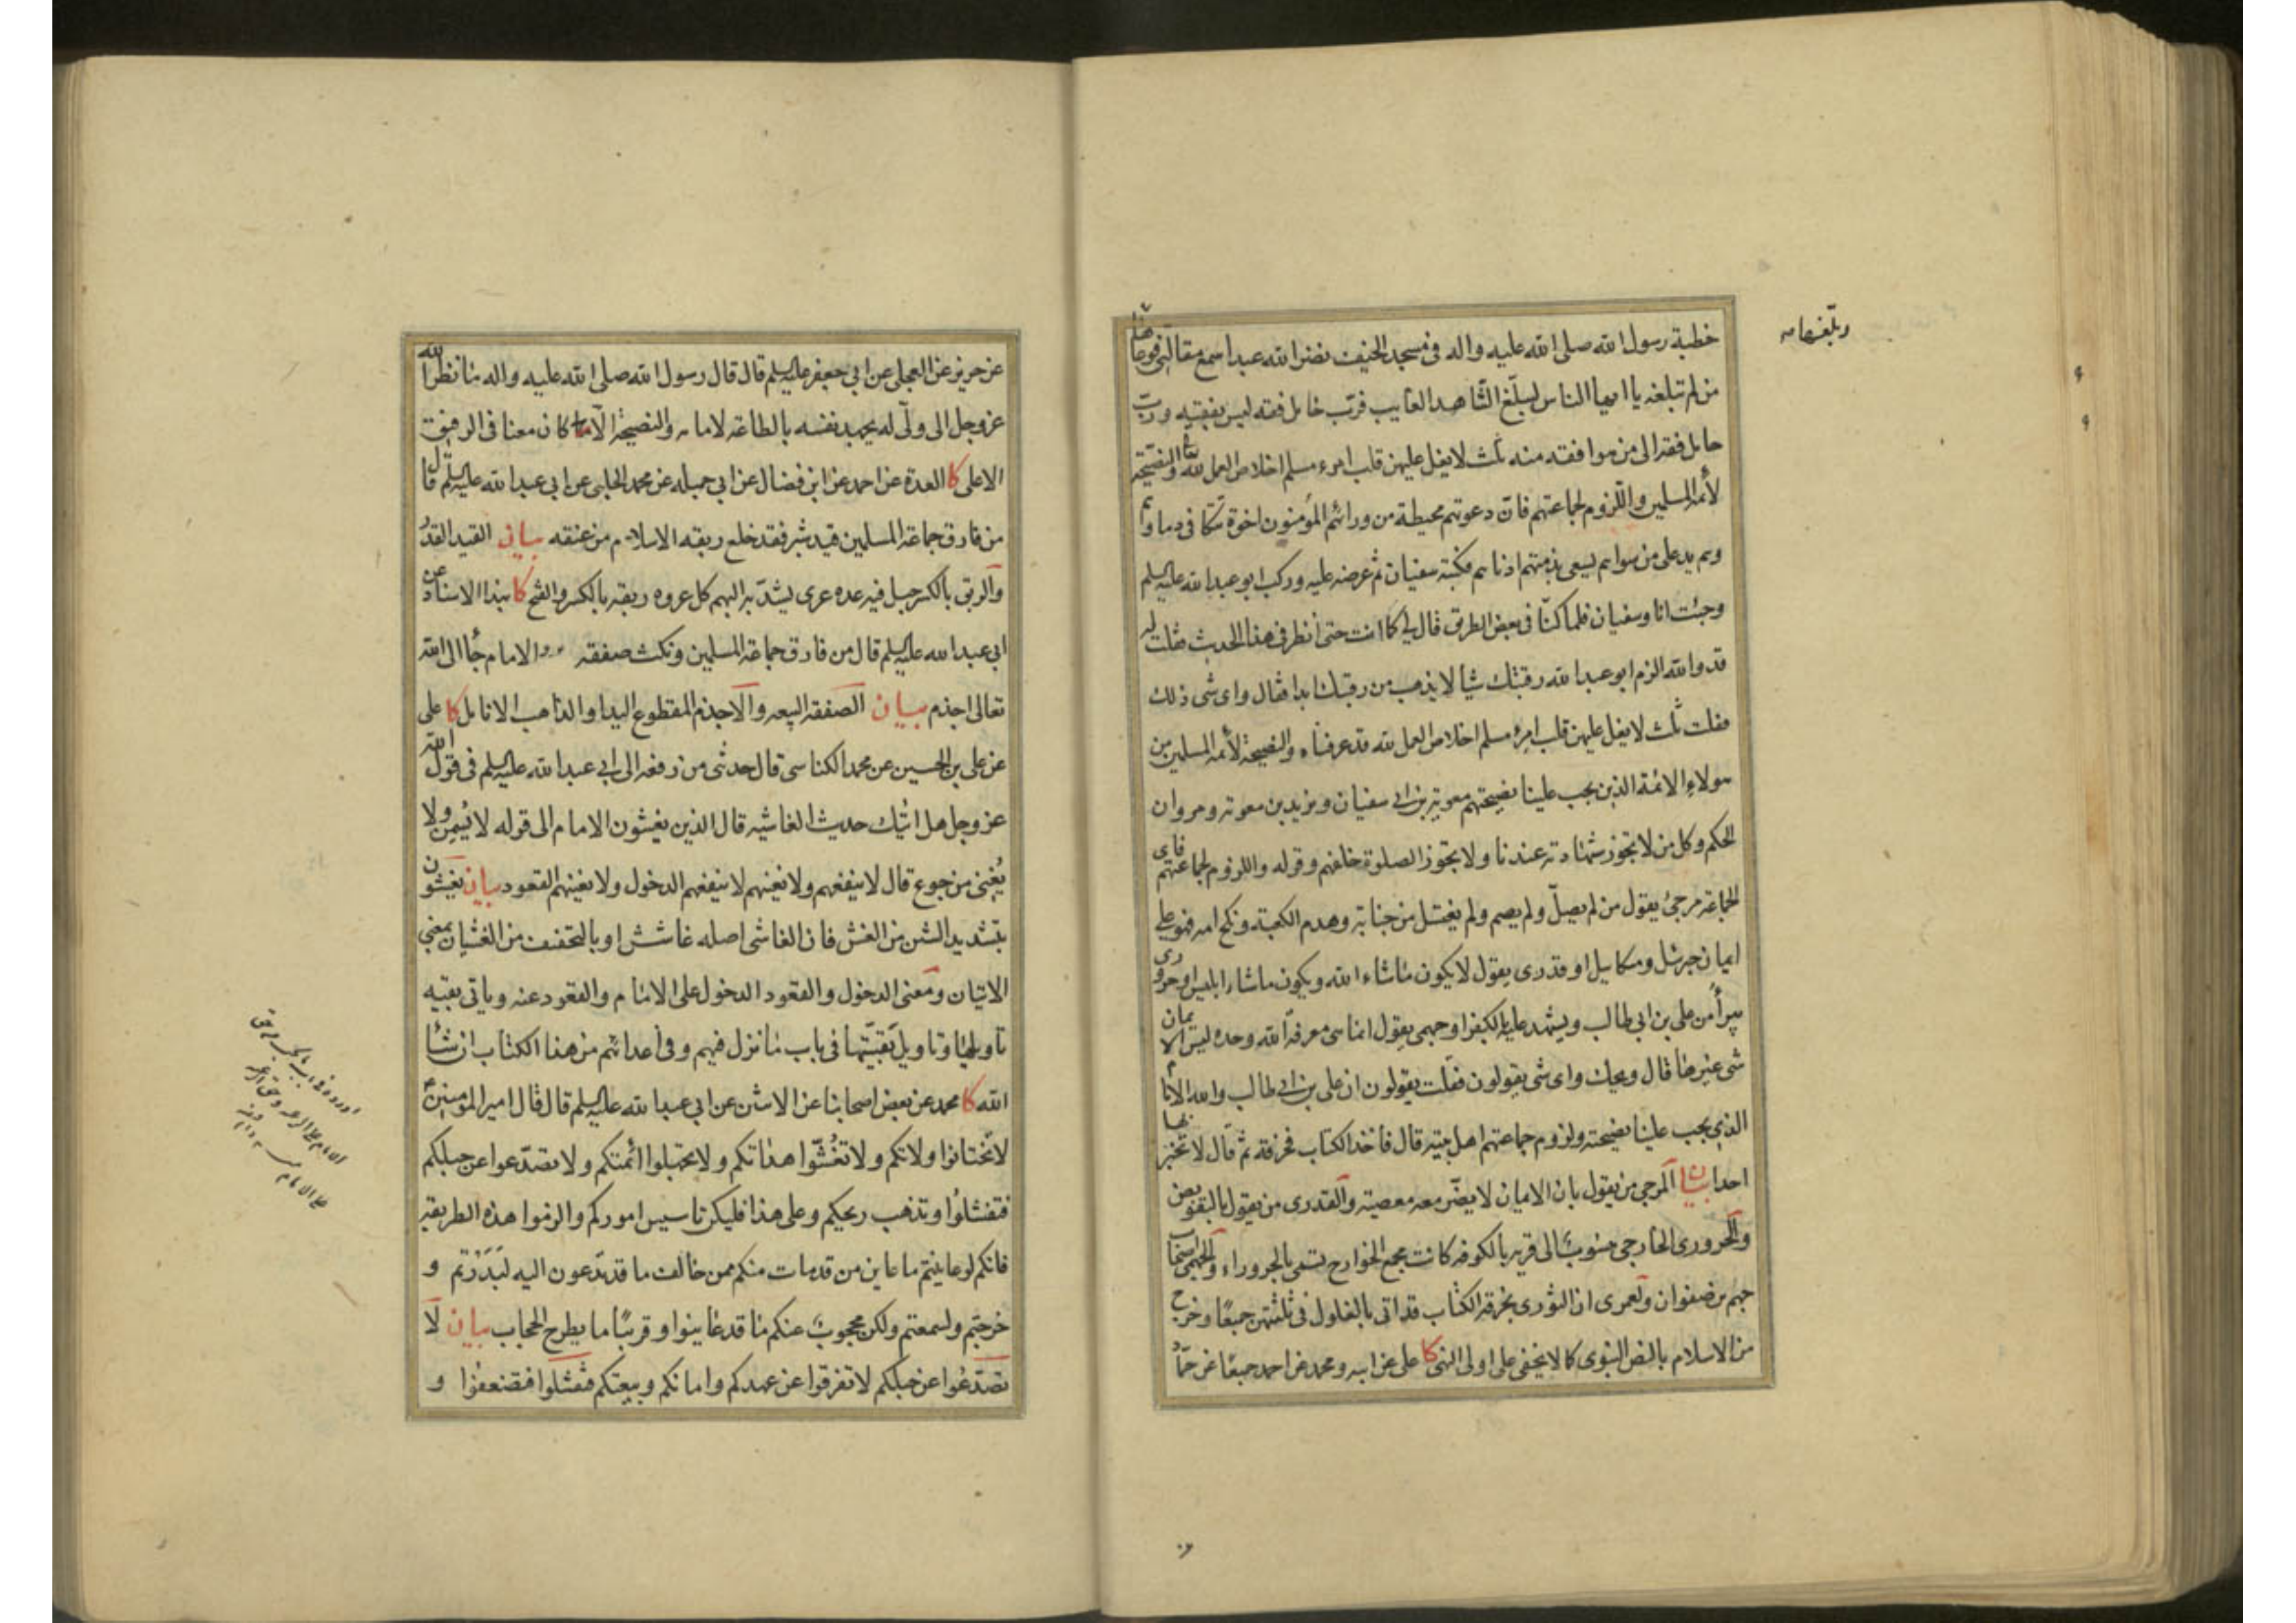 خطبة رسول الله صلى الله عليه واله فى مسجد الخيف نضر الله عبدا سمع مقالتى فوعاها
وبلغها
من لم تبلغه يا ايها الناس ليبلغ الشاهد الغايب فرب حامل فقه ليس بفقيه ورب
حامل فقه الى من هو افقه منه ثلث لا يغل عليهن قلب امرء مسلم اخلاص العمل لله والنصيحة
لأئمة المسلمين واللزوم لجماعتهم فان دعوتهم محيطة من ورائهم المؤمنون اخوة تتكافى دماؤهم
وهم يد على من سواهم يسعى بذمتهم ادناهم فكتبه سفيان ثم عرضه عليه وركب ابو عبد الله عليه السلم
وجئت انا وسفيان فلما كنا فى بعض الطريق قال لى كما انت حتى أنظر فى هذا الحديث فقلت له
قد والله الزم ابو عبد الله رقبتك شيأ لا يذهب من رقبتك ابدا فقال واى شى ذلك
فقلت ثلث لا يغل عليهن قلب امرء مسلم اخلاص العمل لله قد عرفناه والنصيحة لأئمة المسلمين من
هولاء الائمة الذين يجب علينا نصيحتهم معوية بن ابى سفيان ويزيد بن معوية ومروان
الحكم وكل من لا تجوز شهادته عندنا ولا يجوز الصلوة خلفهم وقوله واللزوم لجماعتهم فاى
الجماعة مرجئ يقول من لم يصل ولم يصم ولم يغتسل من جنابة وهدم الكعبة ونكح امه فهو على
ايمان جبرئيل وميكاييل او قدرى يقول لا يكون ما شاء الله ويكون ما شاء ابليس او حرورى
يبرأ من على بن ابى طالب ويشهد عليه بالكفر او جهمى يقول انما هى معرفة الله وحده ليس الايمان
شى غيرها قال ويحك واى شى يقولون فقلت يقولون ان على بن ابى طالب والله الامام
الذى يجب علينا نصيحته ولزوم جماعتهم اهل بيته قال فأخذ الكتاب فخرقه ثم قال لا تخبر بها
احدا بيان المرجى من يقول بان الايمان لا يضر معه معصية والقدرى من يقول بالتفويض
والحرورى الخارجى منسوب الى قرية بالكوفة كانت مجمع الخوارج تسمى بالحروراء والجهمى اصحاب
جهم بن صفوان ولعمرى ان الثورى بخرقه الكتاب قد اتى بالغلول فى ثلثتهن جميعا وخرج
من الاسلام بالنص النبوى كما لا يخفى على اولى النهى كا على عن ابيه ومحمد عن احمد جميعا عن حماد
عن حريز عن العجلى عن ابى جعفر عليه السلم قال قال رسول الله صلى الله عليه واله ما نظر الله
عز وجل الى ولى له يجهد نفسه بالطاعة لامامه والنصيحة الا كان معنا فى الرفيق
الاعلى كا العدة عن احمد عن ابن فضال عن ابى جميله عن محمد الحلبى عن ابى عبد الله عليه السلم قال
من فارق جماعة المسلمين قيد شبر فقد خلع ربقة الاسلام من عنقه بيان القيد القدر
والربق بالكسر حبل فيه عدة عرى يشد به البهم كل عروه ربقة بالكسر والفتح كا بهذا الاسناد عن
ابى عبد الله عليه السلم قال من فارق جماعة المسلمين ونكث صفقه الامام جاء الى الله
تعالى اجذم بيان الصفقه البيعه والاجذم المقطوع اليد او الذاهب الانامل كا على
عن على بن الحسين عن محمد الكناسى قال حدثنى من رفعه الى ابى عبد الله عليه السلم فى قول الله
عز وجل هل اتيك حديث الغاشية قال الذين يغشون الامام الى قوله لا يسمن ولا
يغنى من جوع قال لا ينفعهم ولا يغنيهم لا ينفعهم الدخول ولا يغنيهم القعود بيان يغشون
بتشديد الشين من الغش فان الغاشى اصله غاشش او بالتخفيف من الغشيان بمعنى
الاتيان ومعنى الدخول والقعود الدخول على الامام والقعود عنه وياتى بقيه
تاويلها وتاويل بقيتها فى باب ما نزل فيهم وفى أعدائهم من هذا الكتاب ان شاء
الله كا محمد عن بعض اصحابنا عن الاثنين عن ابى عبد الله عليه السلم قال قال امير المومنين ع
لا تختانوا ولاتكم ولا تغشوا هداتكم ولا تجهلوا ائمتكم ولا تصدعوا عن حبلكم
فتفشلوا وتذهب ريحكم وعلى هذا فليكن تاسيس اموركم والزموا هذه الطريقة
فانكم لو عاينتم ما عاين من قد مات منكم ممن خالف ما قد تدعون اليه لبدرتم و
خرجتم ولسمعتم ولكن محجوب عنكم ما قد عاينوا وقريبا ما يطرح الحجاب بيان لا
تصدعوا عن حبلكم لا تفرقوا عن عهدكم وامانكم وبيعتكم فتفشلوا فتضعفوا و